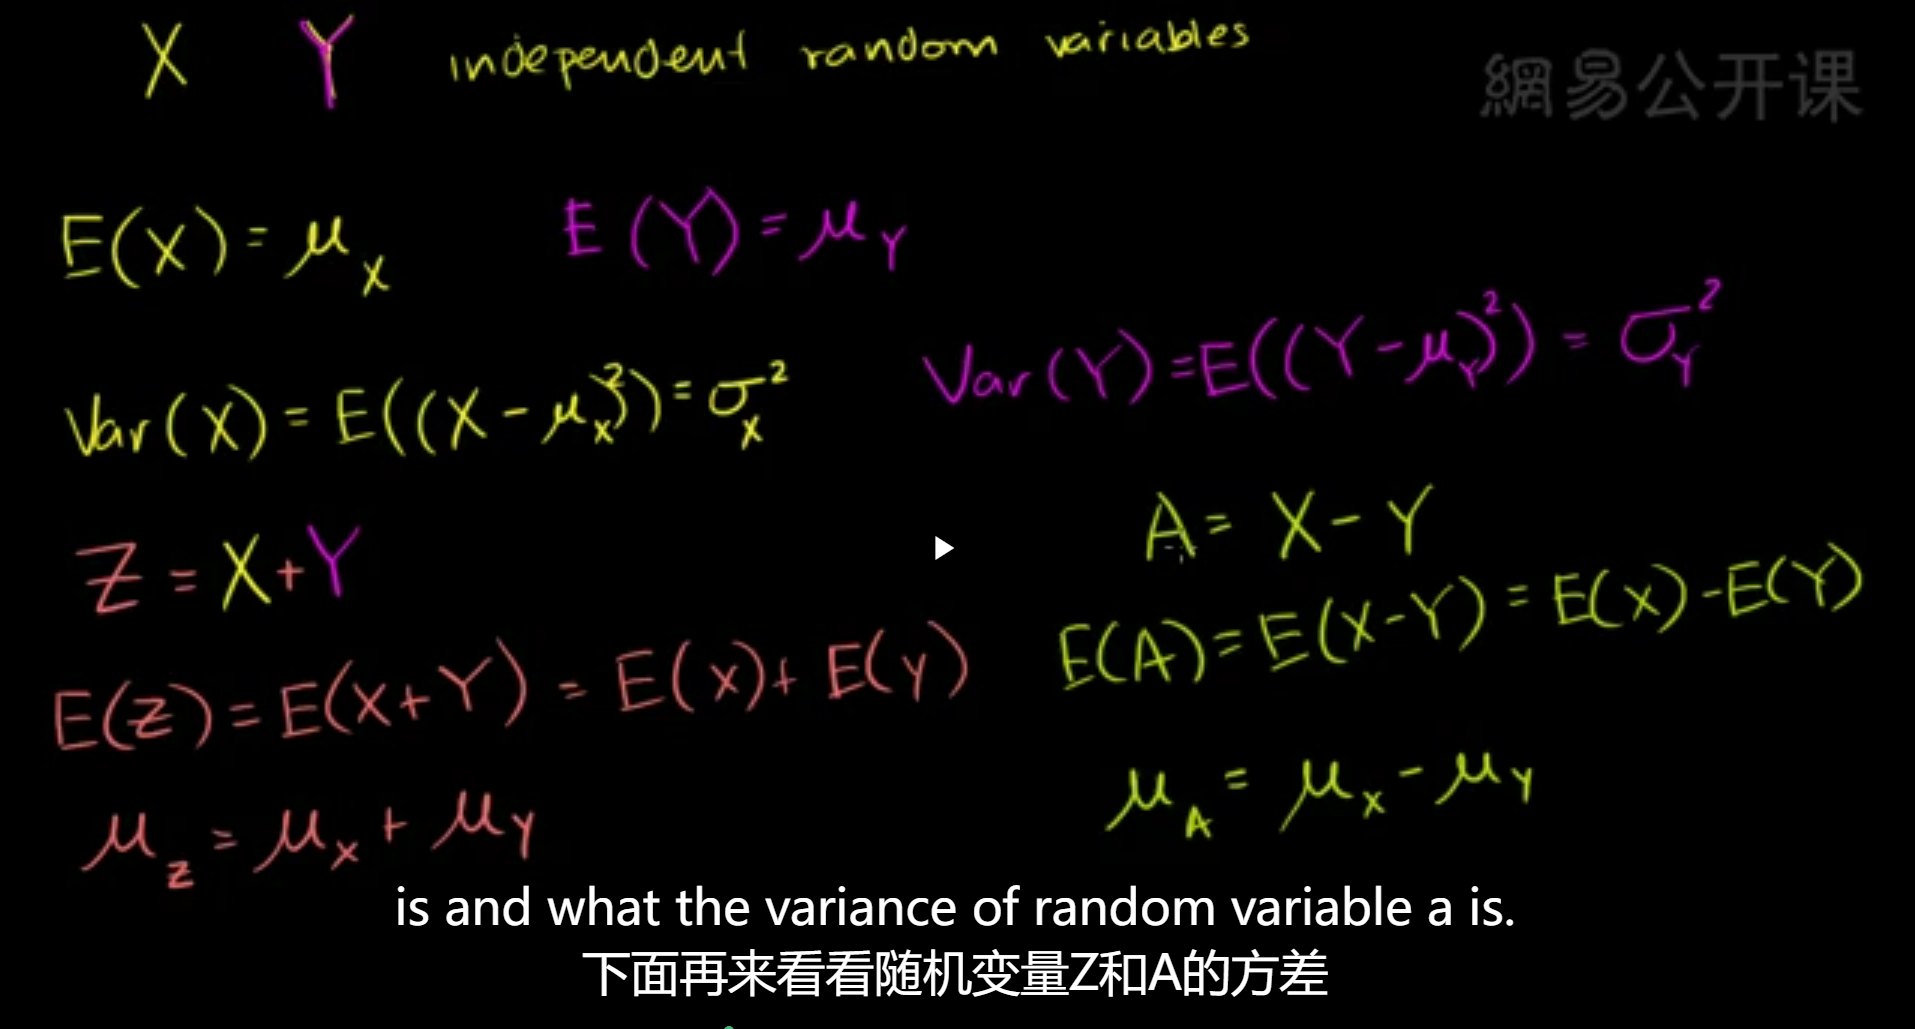 X Y independent random variables
網易公开课
E(X) = μ_X E(Y) = μ_Y
Var(X) = E((X-μ_X)²) = σ_X² Var(Y) = E((Y-μ_Y)²) = σ_Y²
Z = X+Y A = X-Y
E(Z) = E(X+Y) = E(X)+E(Y) E(A) = E(X-Y) = E(X)-E(Y)
μ_Z = μ_X + μ_Y μ_A = μ_X - μ_Y
is and what the variance of random variable a is.
下面再来看看随机变量Z和A的方差